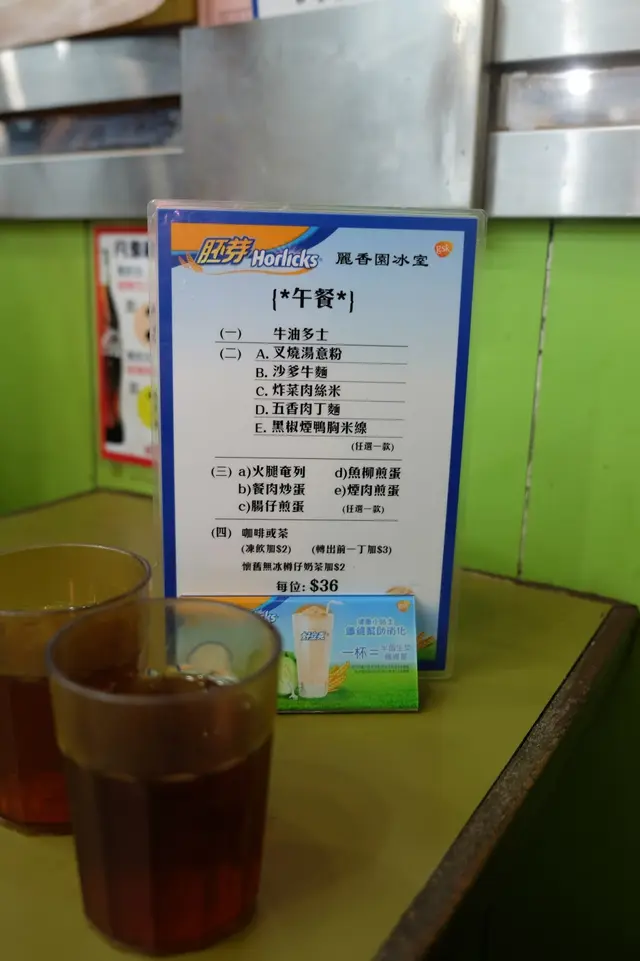 胚芽 Horlicks 麗香園冰室 gsk
{*午餐*}
(一) 牛油多士
(二) A. 叉燒湯意粉
B. 沙爹牛麵
C. 炸菜肉絲米
D. 五香肉丁麵
E. 黑椒煙鴨胸米線
(任選一款)
(三) a)火腿奄列 d)魚柳煎蛋
b)餐肉炒蛋 e)煙肉煎蛋
c)腸仔煎蛋 (任選一款)
(四) 咖啡或茶
(凍飲加$2) (轉出前一丁加$3)
懷舊無冰樽仔奶茶加$2
每位: $36
一杯=